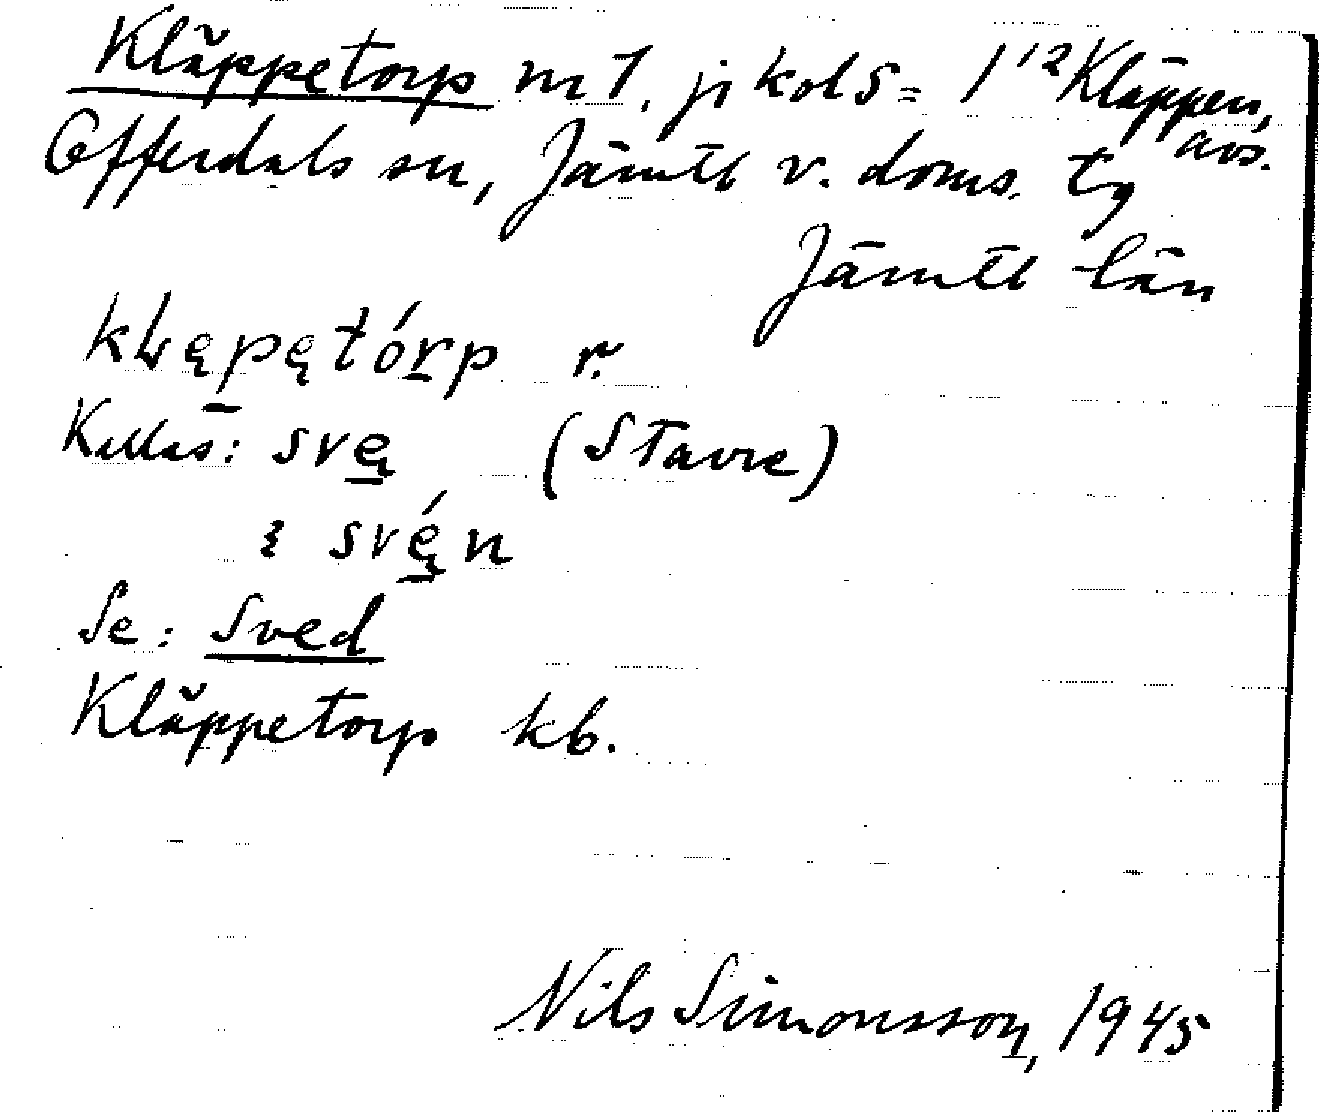 Kläppetorp nr 1. jkols = 1¹² Kläppen,
Offerdals sn, Jämtl v. doms. tg avs.
Jämtl län
kłępętórp r.
Kallas: svę (Stavre)
svę́n
Se: Sved
Kläppetorp kb.
Nils Simonsson, 1945